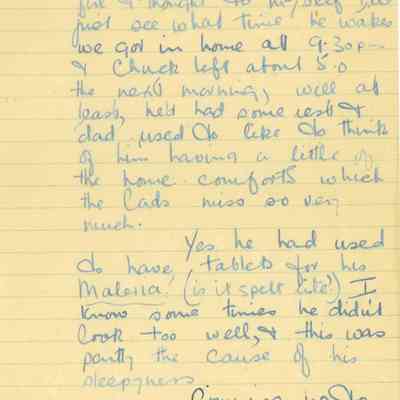 fire & thought to myself I'll
just see what time he wakes
we got in home at 9.30pm
& Chuck left about 5.0
the next morning, well at
least, he'd had some rest &
dad used to like to think
of him having a little of
the home comforts which
the lads miss so very
much.
Yes he had used
to have tablets for his
Maleria, (is it spelt like?) I
know some times he didn't
look too well, & this was
partly the cause of his
sleepyness